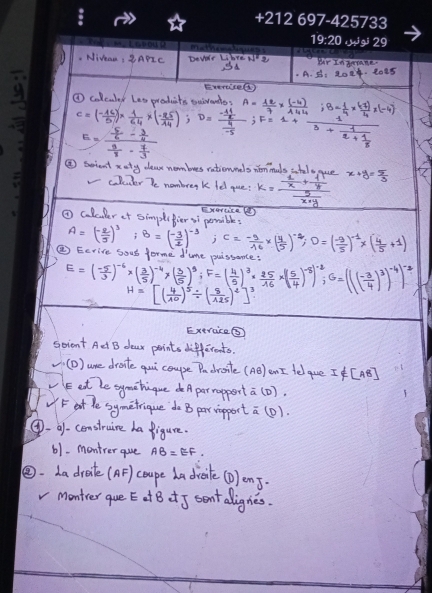 +212 697-425733
29 نونبر 19:20
Niveau: 2APIC
Devoir Libre N°2
S1
Bir Inzarane
A.S: 2024-2025
Exercice ①
① calculer Les produits suivants: A = 12/7 × (-4)/144
C = (-15/5) × 1/64 × (-25/14)
② Soient x et y deux nombres rationnels non nuls tels que x+y = 5/3
calculer le nombre K tel que: K =
Exercice ②
① Calculer et Simplifier si possible:
A = (-2/5)³ ; B = (-3/2)⁻³ ; C = -9/16 × (4/3)⁻² ; D = (-3/5)⁻¹ × (4/5 + 1)
② Ecrire Sous forme d'une puissance:
E = (-5/3)⁻⁶ × (3/5)⁻⁴ × (3/5)⁹ ; F = (4/5)³ × 25/16 × ((5/4)⁻³)⁻² ; G = (((-3/4)³)⁻⁴)⁻²
H = [(4/10)⁵ ÷ (8/125)²]³
Exercice ③
Soient A et B deux points différents.
(D) une droite qui coupe la droite (AB) en I tel que I ∉ [AB]
E est le symétrique de A par rapport à (D).
F est le symétrique de B par rapport à (D).
① - a) - construire la figure.
b) - Montrer que AB = EF.
② - La droite (AF) coupe la droite (D) en J.
Montrer que E et B et J sont alignés.